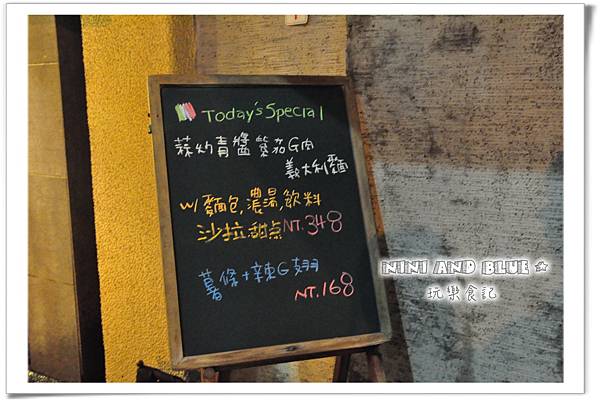 Today's Special
蒜炒青醬紫茄G肉
義大利麵
w/ 麵包,濃湯,飲料
沙拉甜点 NT.348
薯條+辣G翅
NT.168
NINI AND BLUE
玩樂食記